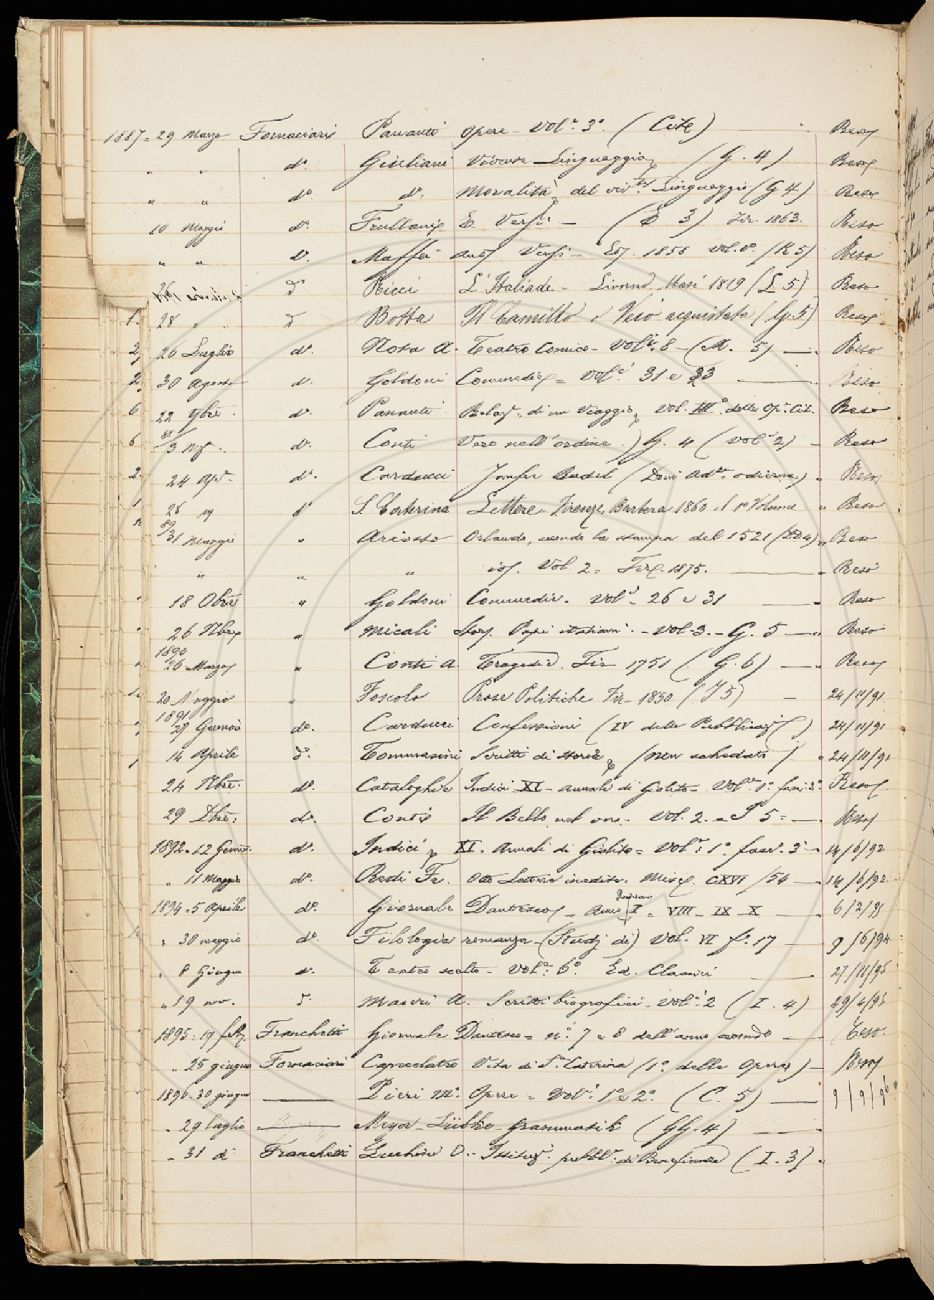 1887 - 29 Marzo Fornaciari Pananti Opere - Vol.e 3° (Cite) Reso
" " d.o Giuliani Vivente Linguaggio (G. 4) Reso
" " d.o d.o Moralità del viv.te Linguaggio (G 4) Reso
10 Maggio d.o Frullani E. Versi - (E 3) Fir. 1863. Reso
" " d.o Maffei Versi - 1858 vol. (K 5) Reso
d.o Ricci L'Italiade - Livorno Masi 1819 (L 5) Reso
28 " d.o Botta Il Camillo o Vejo acquistata (G. 5) Reso
26 Luglio d.o Nota A. Teatro Comico - Vol.e 8 - (M. 5) - Reso
30 Agosto d.o Goldoni Commedie = Vol.i 31 e 33 Reso
22 9bre. d.o Pananti Relaz. di un Viaggio, Vol. III° delle Op. Cit. Reso
88/3 d.o Conti Vero nell'ordine. G. 4 (Vol.e 2) - Reso
24 Ap.e d.o Carducci Jaufre Rudel Reso
28 d.o S. Caterina Lettere - Firenze, Barbera 1860 il 1° Volume " Reso
89/31 Maggio " Ariosto Orlando, secondo la stampa del 1521 " Reso
" " " Vol. 2 = 1875. " Reso
18 Obre " Goldoni Commedie. Vol.i 26 e 31 Reso
26 Nbre " Micali Stor. Popi italiani. - Vol. 3. - G. 5 - " Reso
1890
26 Marzo " Conti A Tragedie. Fir 1751 (G. 6) - " Reso
20 Maggio " Foscolo Prose Politiche Fir - 1850 (J 5) - 24/11/91
1891
27 Gennaio d.o Carducci Confessioni (IV delle Pubblicaz.) 24/11/91
14 Aprile d.o Tommasini Scritti di Storia (non schedato) " 24/11/91
24 Nbre. d.o Cataloghi e Indici XI - annali di Giolito - Vol.e 1° fasc. 3° Reso
29 Dbre. d.o Conti Il Bello nel vero. - Vol. 2. - J 5 = - Reso
1892 - 12 Genn. d.o Indici XI - Annali di Giolito = Vol.e 1° fasc. 3° - 14/6/92
" 11 Maggio d.o Redi Fr. Otto Lettere inedite. Misc. CXVI /54 - 14/6/92
1894 - 5 Aprile d.o Giornale Dantesco - Anno I = VIII - IX - X - 6/2/95
" 30 maggio d.o Filologia romanza - (Studj di) Vol. VI f.° 17 9/6/94
" 8 Giugno d.o scelto - Vol.e 6° Ed. Classici - 27/11/95
" 19 nov. d.o Mauri A. Scritti biografici - Vol.e 2 (I. 4) 29/4/95
1895 - 19 febb. Franchetti Giornale Dantesco = n.i 7 e 8 dell'anno secondo - Reso.
" 25 giugno Fornaciari Capecelatro Vita di S.a Caterina (1° delle Opere) - Reso
1896 - 30 giugno Pieri M. Opere = Vol.i 1° e 2° (C. 5) - 9/9/96
" 29 luglio Meyer - Lübke - Grammatik (GG. 4)
" 31 d.o Franchetti Luchini O. - Istituz. pubbl. di Beneficenza (I. 3) -